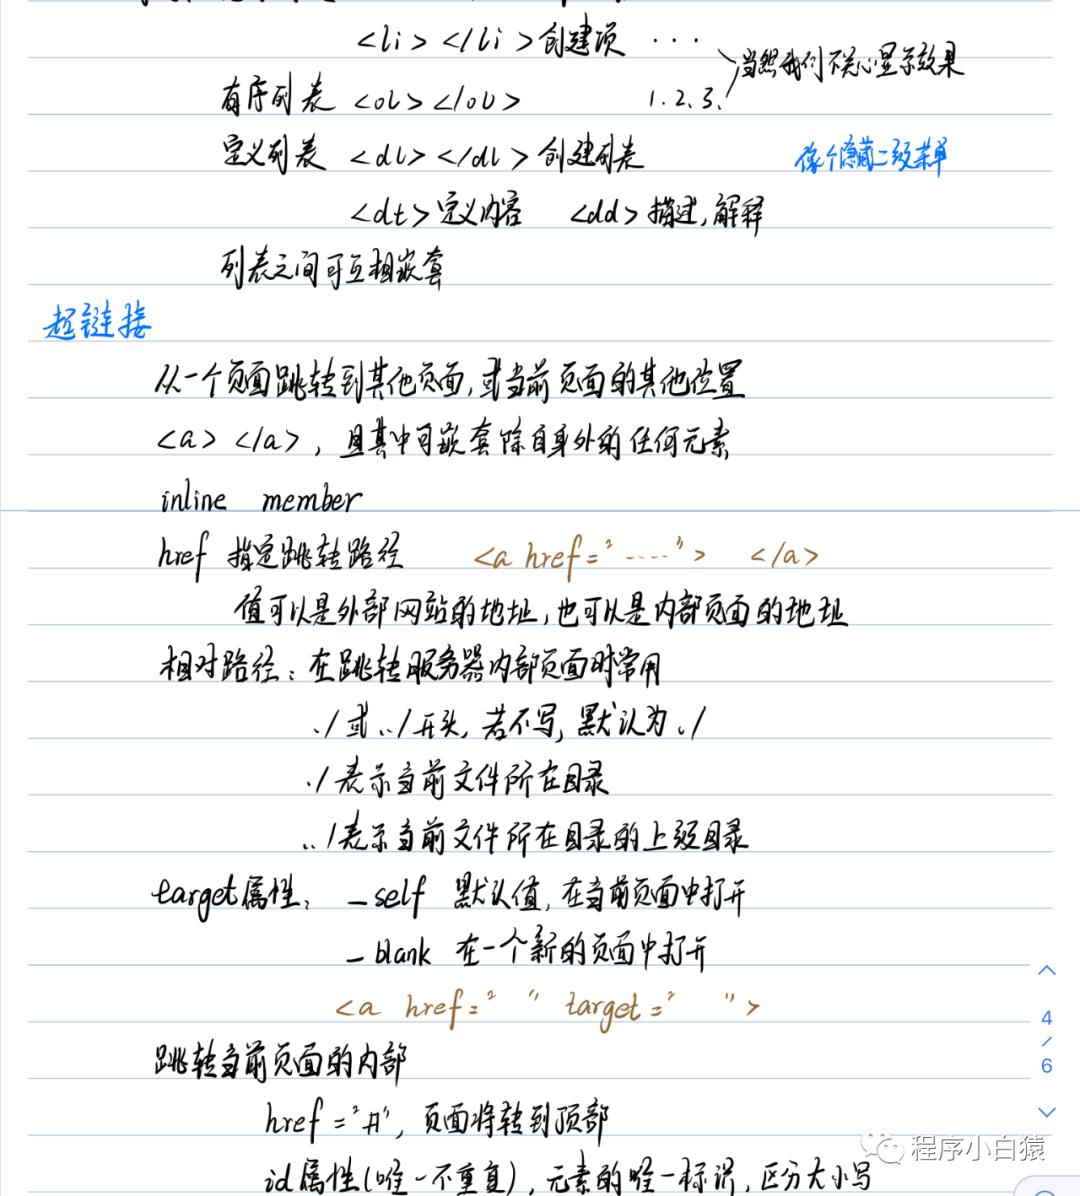 <li></li>创建项 ...
当然我们不关心显示效果
有序列表 <ol></ol> 1.2.3.
定义列表 <dl></dl>创建列表 像个隐藏二级菜单
<dt>定义内容 <dd>描述,解释
列表之间可互相嵌套
超链接
从一个页面跳转到其他页面,或当前页面的其他位置
<a></a>, 且其中可嵌套除自身外的任何元素
inline member
href 指定跳转路径 <a href="....."> </a>
值可以是外部网站的地址,也可以是内部页面的地址
相对路径:在跳转服务器内部页面时常用
./或../开头,若不写,默认为./
./表示当前文件所在目录
../表示当前文件所在目录的上级目录
target属性: _self 默认值,在当前页面中打开
_blank 在一个新的页面中打开
<a href=" " target=" ">
跳转当前页面的内部
href="#",页面将转到顶部
id属性(唯一不重复),元素的唯一标识,区分大小写
4
/
6
程序小白猿